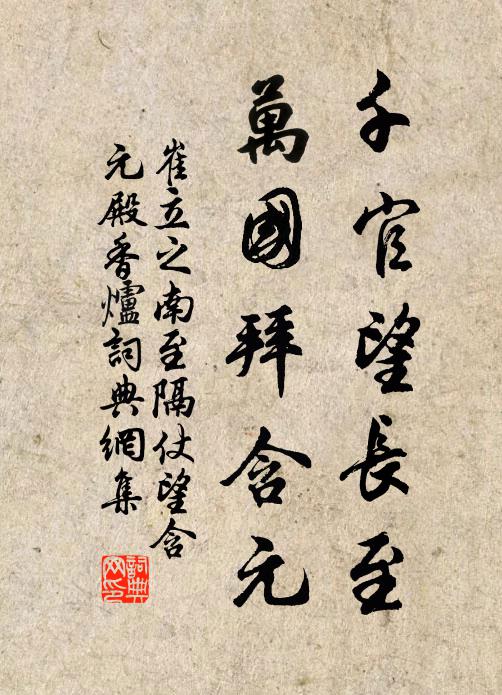 千官望長至
萬國拜含元
崔立之南至隔仗望含
元殿香爐詞典網集
詞典
网印